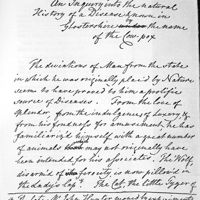 An Inquiry into the natural
History of a Disease known in
Glostershire the name
of the Cow-pox
The deviations of Man from the state
in which he was originally plac'd by Nature
seems to have proved to him a prolific
source of Diseases. From the love of
splendor, from the indulgences of luxury, &
from his fondness for amusement, he has
familiariz'd himself with a great number
of animals which may not originally have
been intended for his associates. The Wolf,
disarm'd of ferocity is now pillow'd in
the lady's lap. The Cat, the little Tyger of